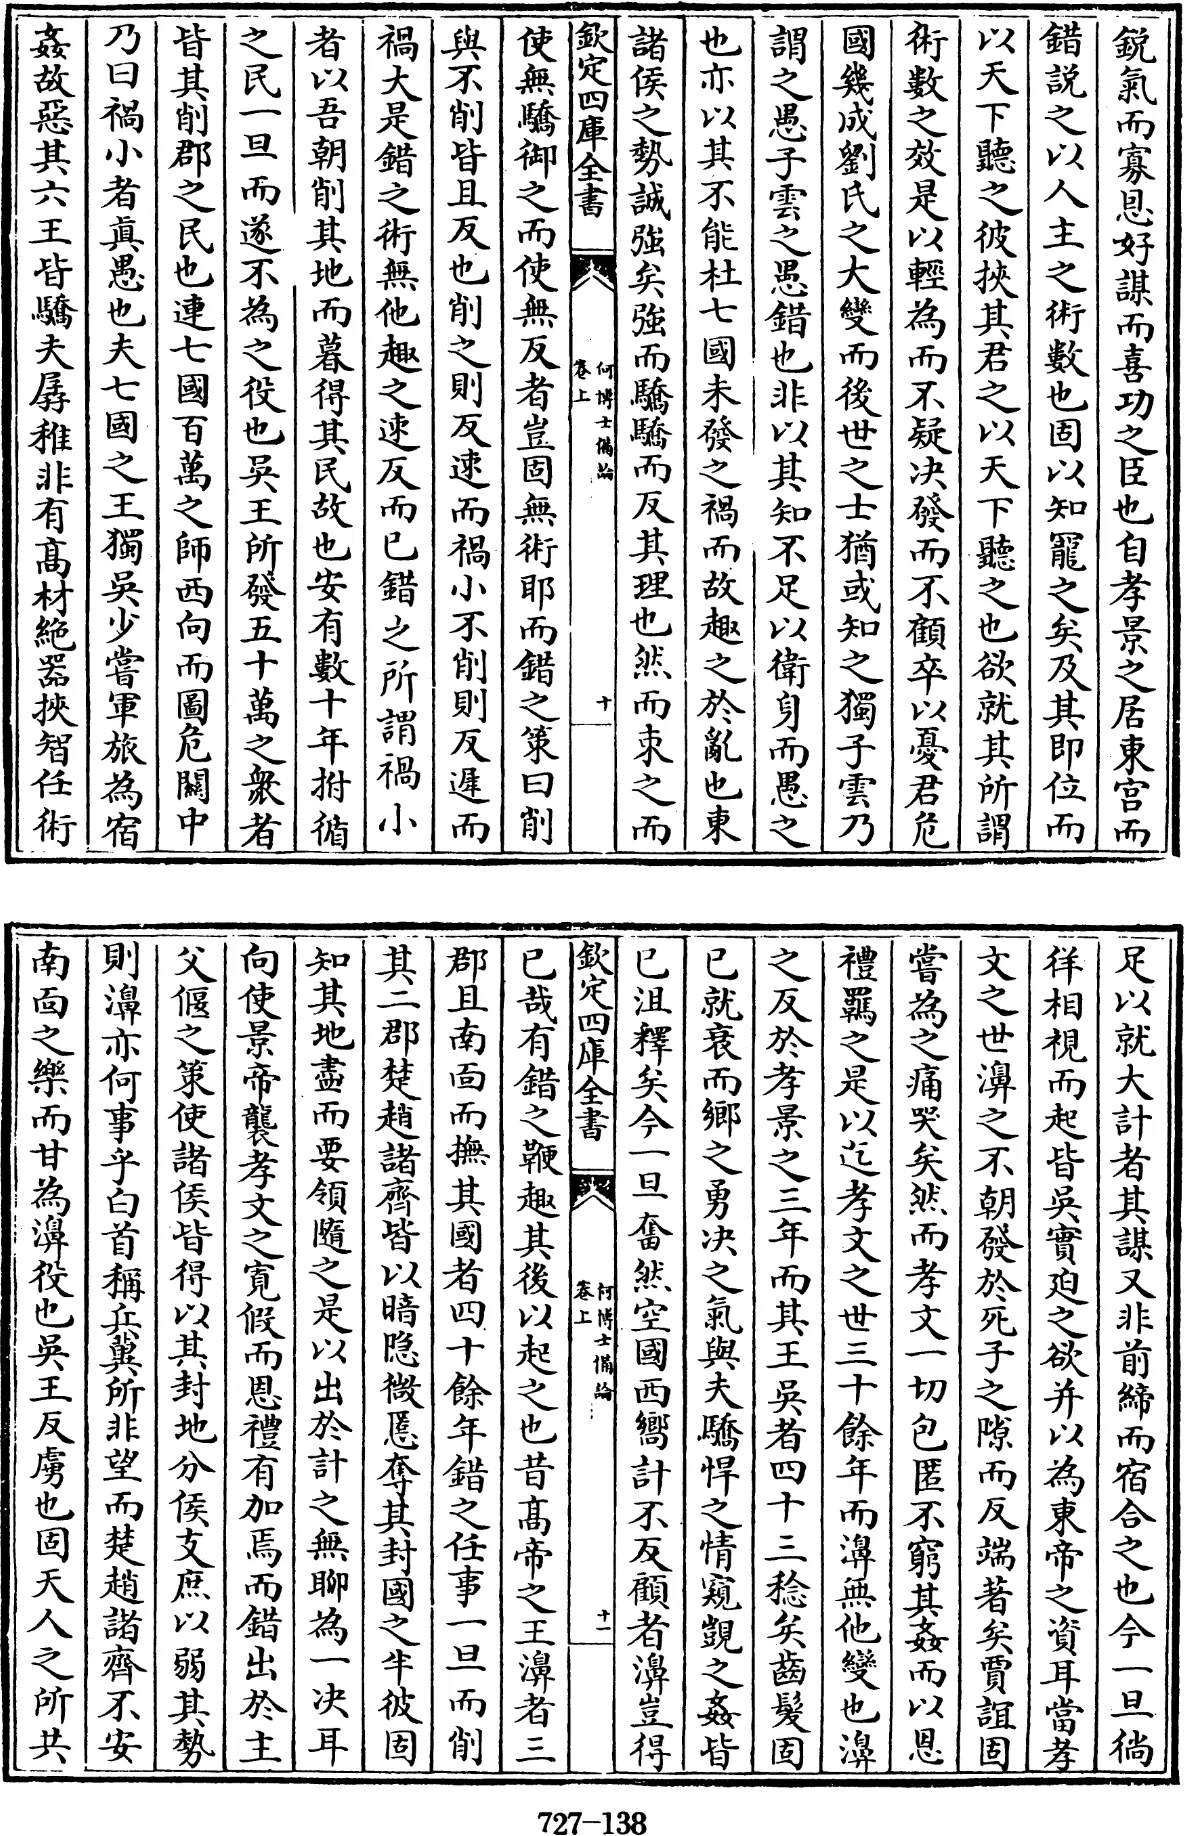 銳氣而寡恩好謀而喜功之臣也自孝景之居東宮而
錯説之以人主之術數也固以知寵之矣及其即位而
以天下聽之彼挾其君之以天下聽之也欲就其所謂
術數之效是以輕為而不疑决發而不顧卒以憂君危
國幾成劉氏之大變而後世之士猶或知之獨子雲乃
謂之愚子雲之愚錯也非以其知不足以衛身而愚之
也亦以其不能杜七國未發之禍而故趣之於亂也東
諸侯之勢誠強矣強而驕驕而反其理也然而束之而
欽定四庫全書
何博士備論
卷上
十
使無驕御之而使無反者豈固無術耶而錯之策曰削
與不削皆且反也削之則反速而禍小不削則反遲而
禍大是錯之術無他趣之速反而已錯之所謂禍小
者以吾朝削其地而暮得其民故也安有數十年拊循
之民一旦而遂不為之役也吳王所發五十萬之衆者
皆其削郡之民也連七國百萬之師西向而圖危關中
乃曰禍小者真愚也夫七國之王獨吳少嘗軍旅為宿
姦故惡其六王皆驕夫孱稚非有髙材絶器挾智任術
足以就大計者其謀又非前締而宿合之也今一旦徜
徉相視而起皆吳實廹之欲并以為東帝之資耳當孝
文之世濞之不朝發於死子之隙而反端著矣賈誼固
嘗為之痛哭矣然而孝文一切包匿不窮其姦而以恩
禮羈之是以訖孝文之世三十餘年而濞無他變也濞
之反於孝景之三年而其王吳者四十三稔矣齒髮固
已就衰而鄉之勇决之氣與夫驕悍之情窺覬之姦皆
已沮釋矣今一旦奮然空國西嚮計不反顧者濞豈得
欽定四庫全書
何博士備論
卷上
十一
已哉有錯之鞭趣其後以起之也昔髙帝之王濞者三
郡且南面而撫其國者四十餘年錯之任事一旦而削
其二郡楚趙諸齊皆以暗隐微慝奪其封國之半彼固
知其地盡而要領隨之是以出於計之無聊為一决耳
向使景帝襲孝文之寛假而恩禮有加焉而錯出於主
父偃之策使諸侯皆得以其封地分侯支庶以弱其勢
則濞亦何事乎白首稱兵冀所非望而楚趙諸齊不安
南面之樂而甘為濞役也吳王反虜也固天人之所共
727-138